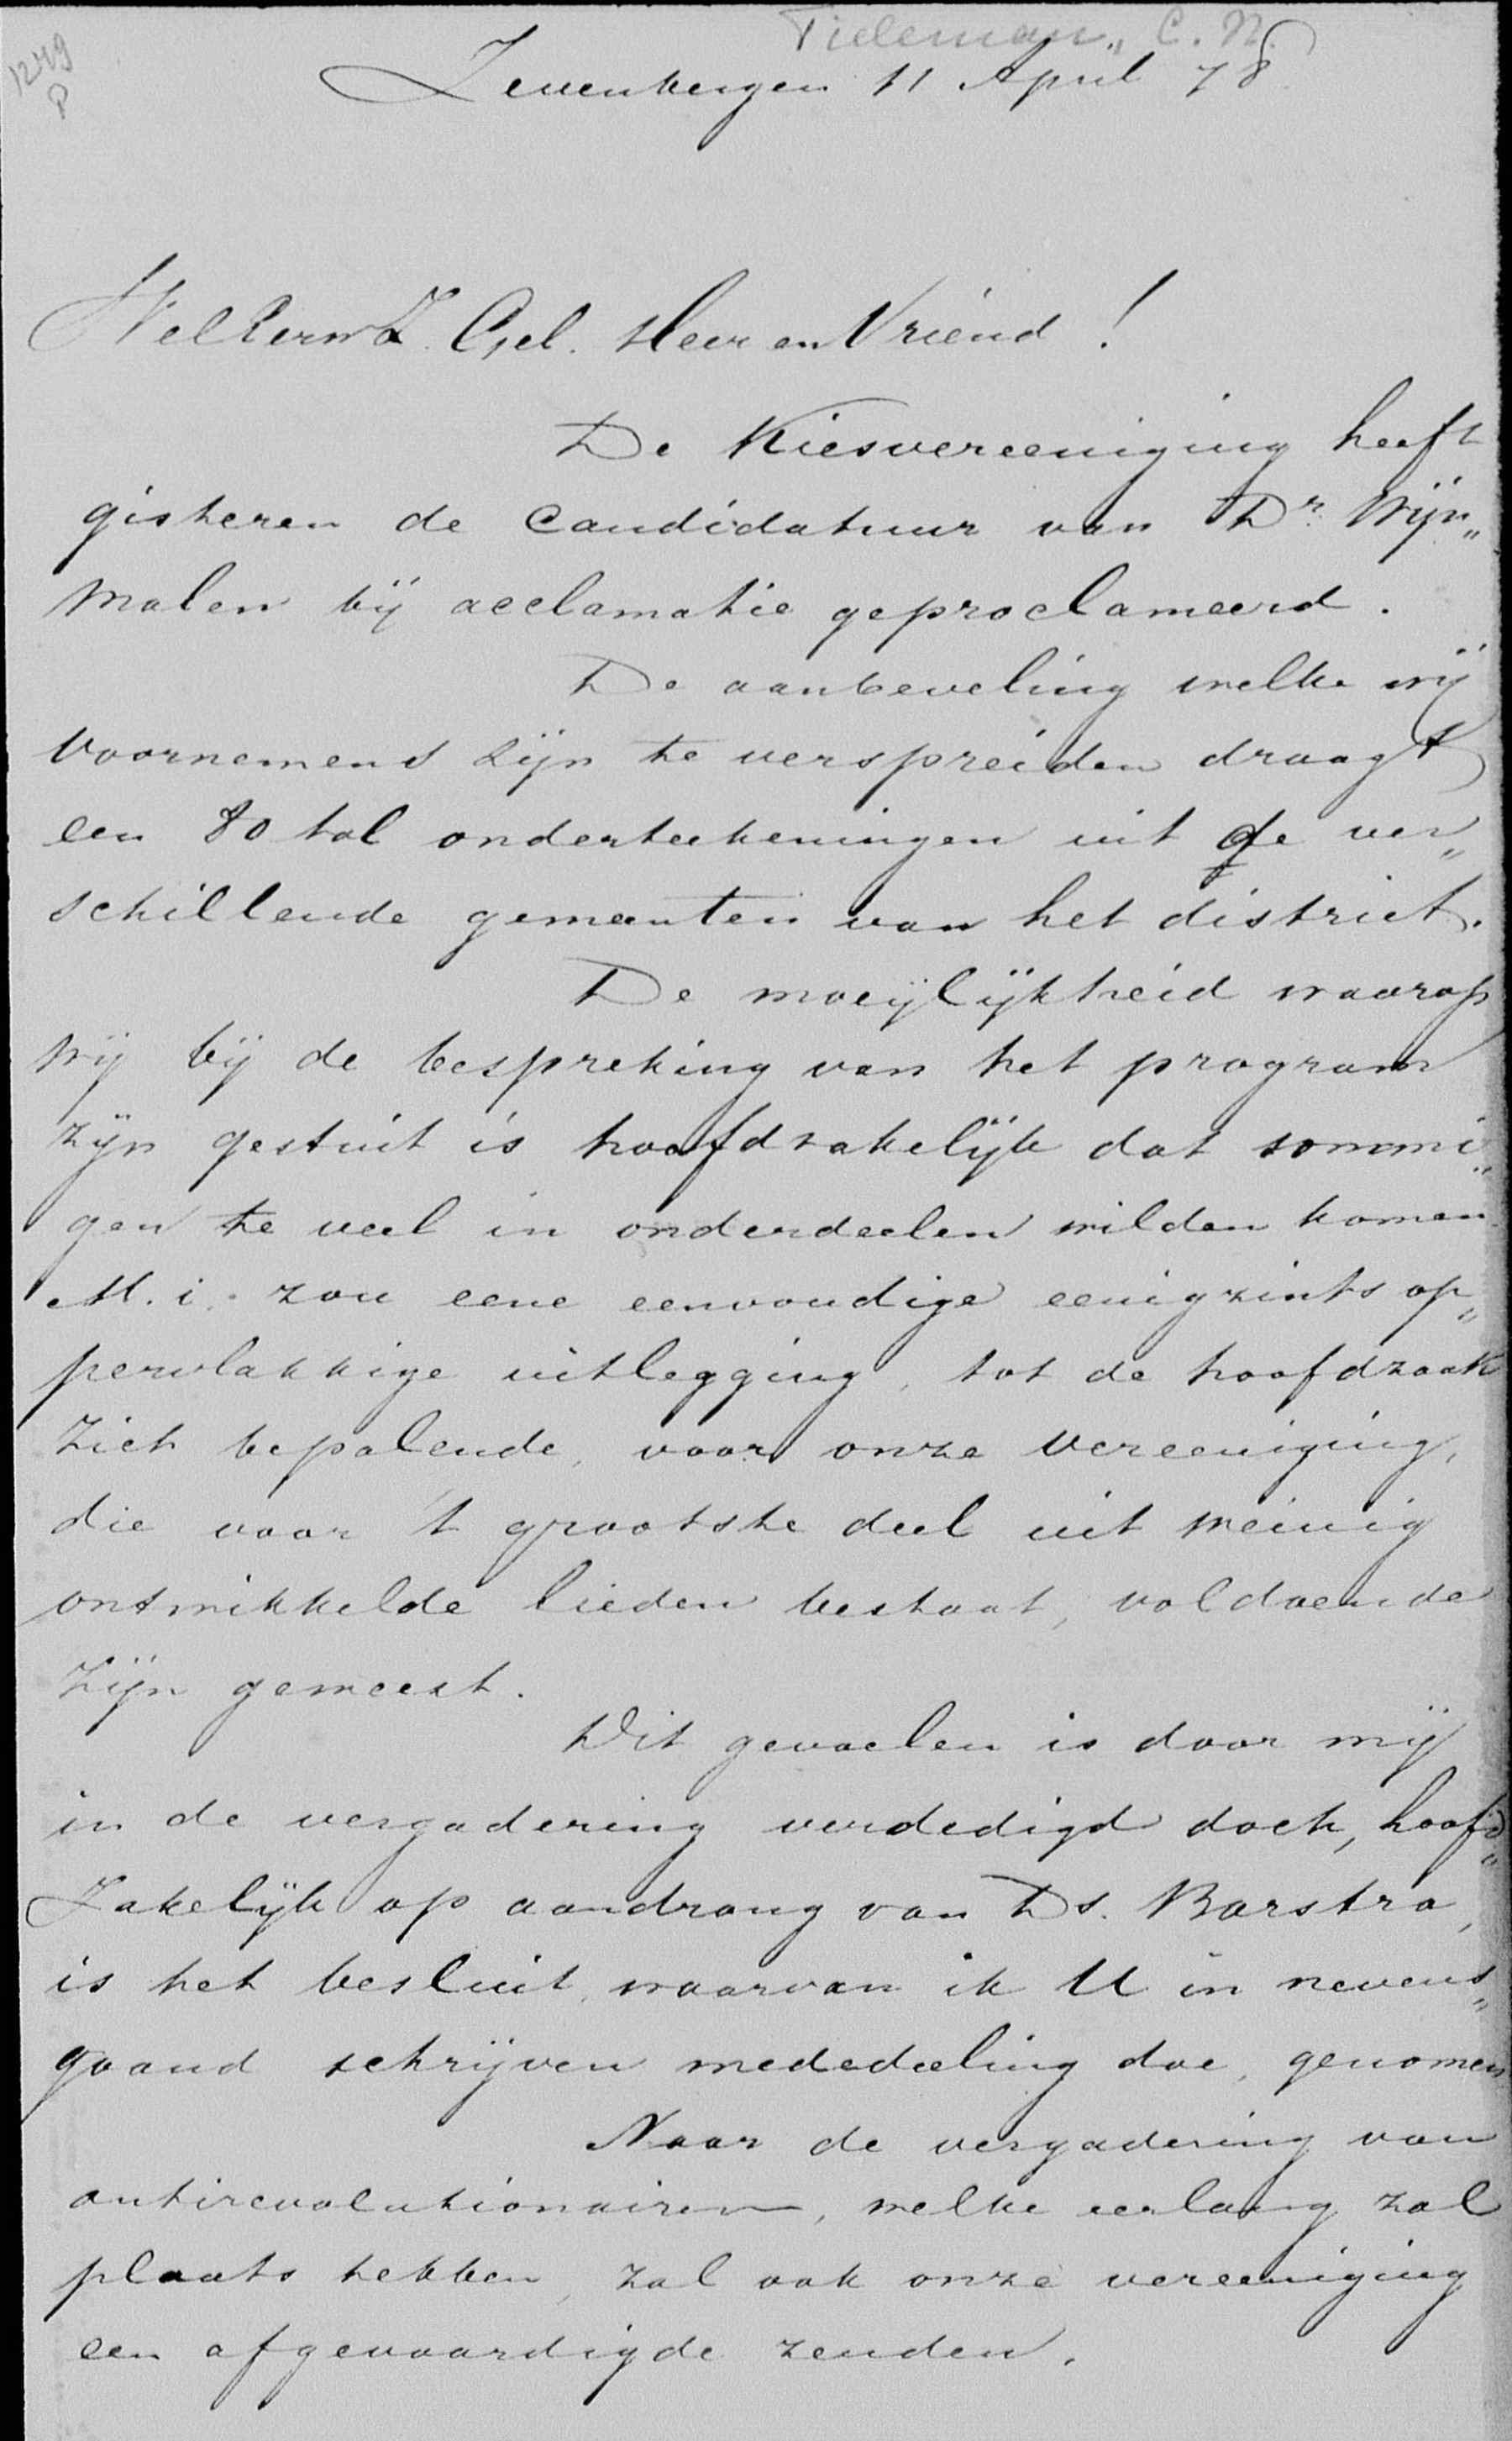 Tieleman, C. N.
1249
P
Zevenbergen 11 April 78
WelEerw Z. Gel. Heer en Vriend!
De Kiesvereeniging heeft
gisteren de candidatuur van Dr. Wijn„
malen bij acclamatie geproclameerd.
De aanbeveling welke wij
voornemens zijn te verspreiden draagt
een 80 tal onderteekeningen uit de ver„
schillende gemeenten van het district.
De moeijlijkheid waarop
wij bij de bespreking van het program
zijn gestuit is hoofdzakelijk dat sommi„
gen te veel in onderdeelen wilden komen
M. i. zou eene eenvoudige eenigzints op„
pervlakkige uitlegging, tot de hoofdzaak
zich bepalende, voor onze vereeniging,
die voor 't grootste deel uit weinig
ontwikkelde lieden bestaat, voldoende
zijn geweest.
Dit gevoelen is door mij
in de vergadering verdedigd doch, hoofd„
zakelijk op aandrang van Ds. Barstra,
is het besluit, waarvan ik U in nevens„
gaand schrijven mededeeling doe, genomen
Naar de vergadering van
antirevolutionairen, welke eerlang zal
plaats hebben, zal ook onze vereeniging
een afgevaardigde zenden.